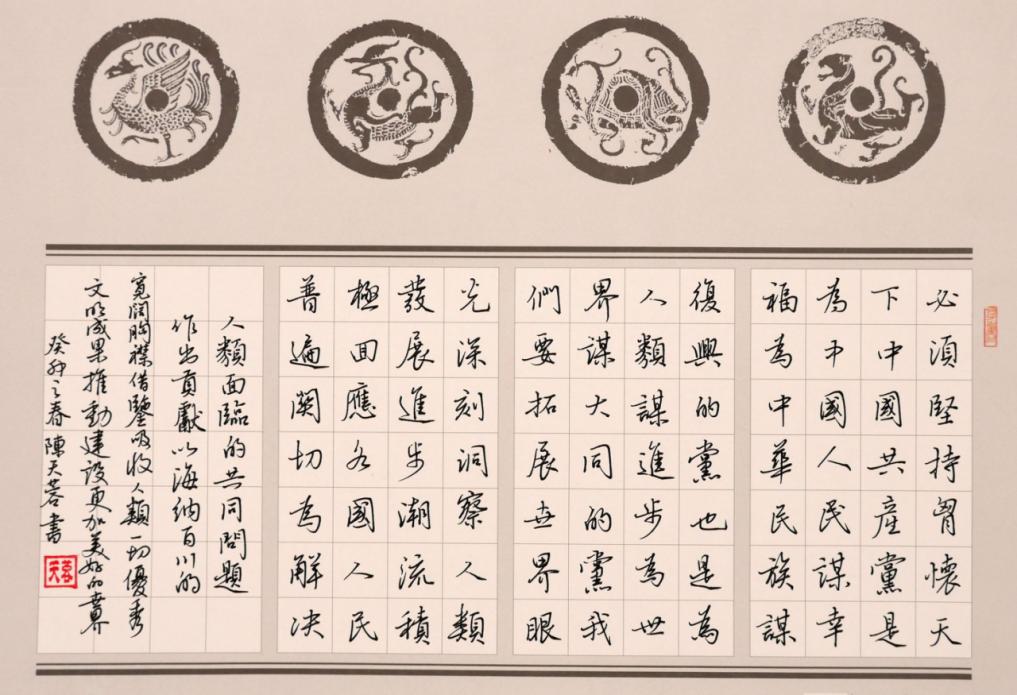 必須堅持胷懷天
下中國共產黨是
為中國人民謀幸
福為中華民族謀
復興的黨也是為
人類謀進步為世
界謀大同的黨我
們要拓展世界眼
光深刻洞察人類
發展進步潮流積
極回應各國人民
普遍關切為解決
人類面臨的共同問題
作出貢獻以海納百川的
寬闊胸襟借鑒吸收人類一切優秀
文明成果推動建設更加美好的世界
癸卯之春陳天蓉書